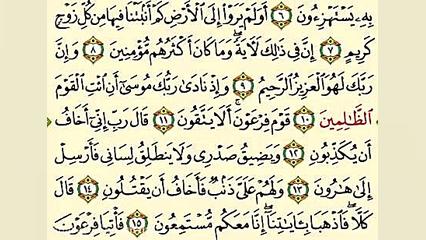 بِهِۦ يَسْتَهْزِءُونَ ٦ أَوَلَمْ يَرَوْا۟ إِلَى ٱلْأَرْضِ كَمْ أَنۢبَتْنَا فِيهَا مِن كُلِّ زَوْجٍ
كَرِيمٍ ٧ إِنَّ فِى ذَٰلِكَ لَءَايَةً ۖ وَمَا كَانَ أَكْثَرُهُم مُّؤْمِنِينَ ٨ وَإِنَّ
رَبَّكَ لَهُوَ ٱلْعَزِيزُ ٱلرَّحِيمُ ٩ وَإِذْ نَادَىٰ رَبُّكَ مُوسَىٰٓ أَنِ ٱئْتِ ٱلْقَوْمَ
ٱلظَّٰلِمِينَ ١٠ قَوْمَ فِرْعَوْنَ ۚ أَلَا يَتَّقُونَ ١١ قَالَ رَبِّ إِنِّىٓ أَخَافُ
أَن يُكَذِّبُونِ ١٢ وَيَضِيقُ صَدْرِى وَلَا يَنطَلِقُ لِسَانِى فَأَرْسِلْ
إِلَىٰ هَٰرُونَ ١٣ وَلَهُمْ عَلَىَّ ذَنۢبٌ فَأَخَافُ أَن يَقْتُلُونِ ١٤ قَالَ
كَلَّا ۖ فَٱذْهَبَا بِـَٔايَٰتِنَآ ۖ إِنَّا مَعَكُم مُّسْتَمِعُونَ ١٥ فَأْتِيَا فِرْعَوْنَ